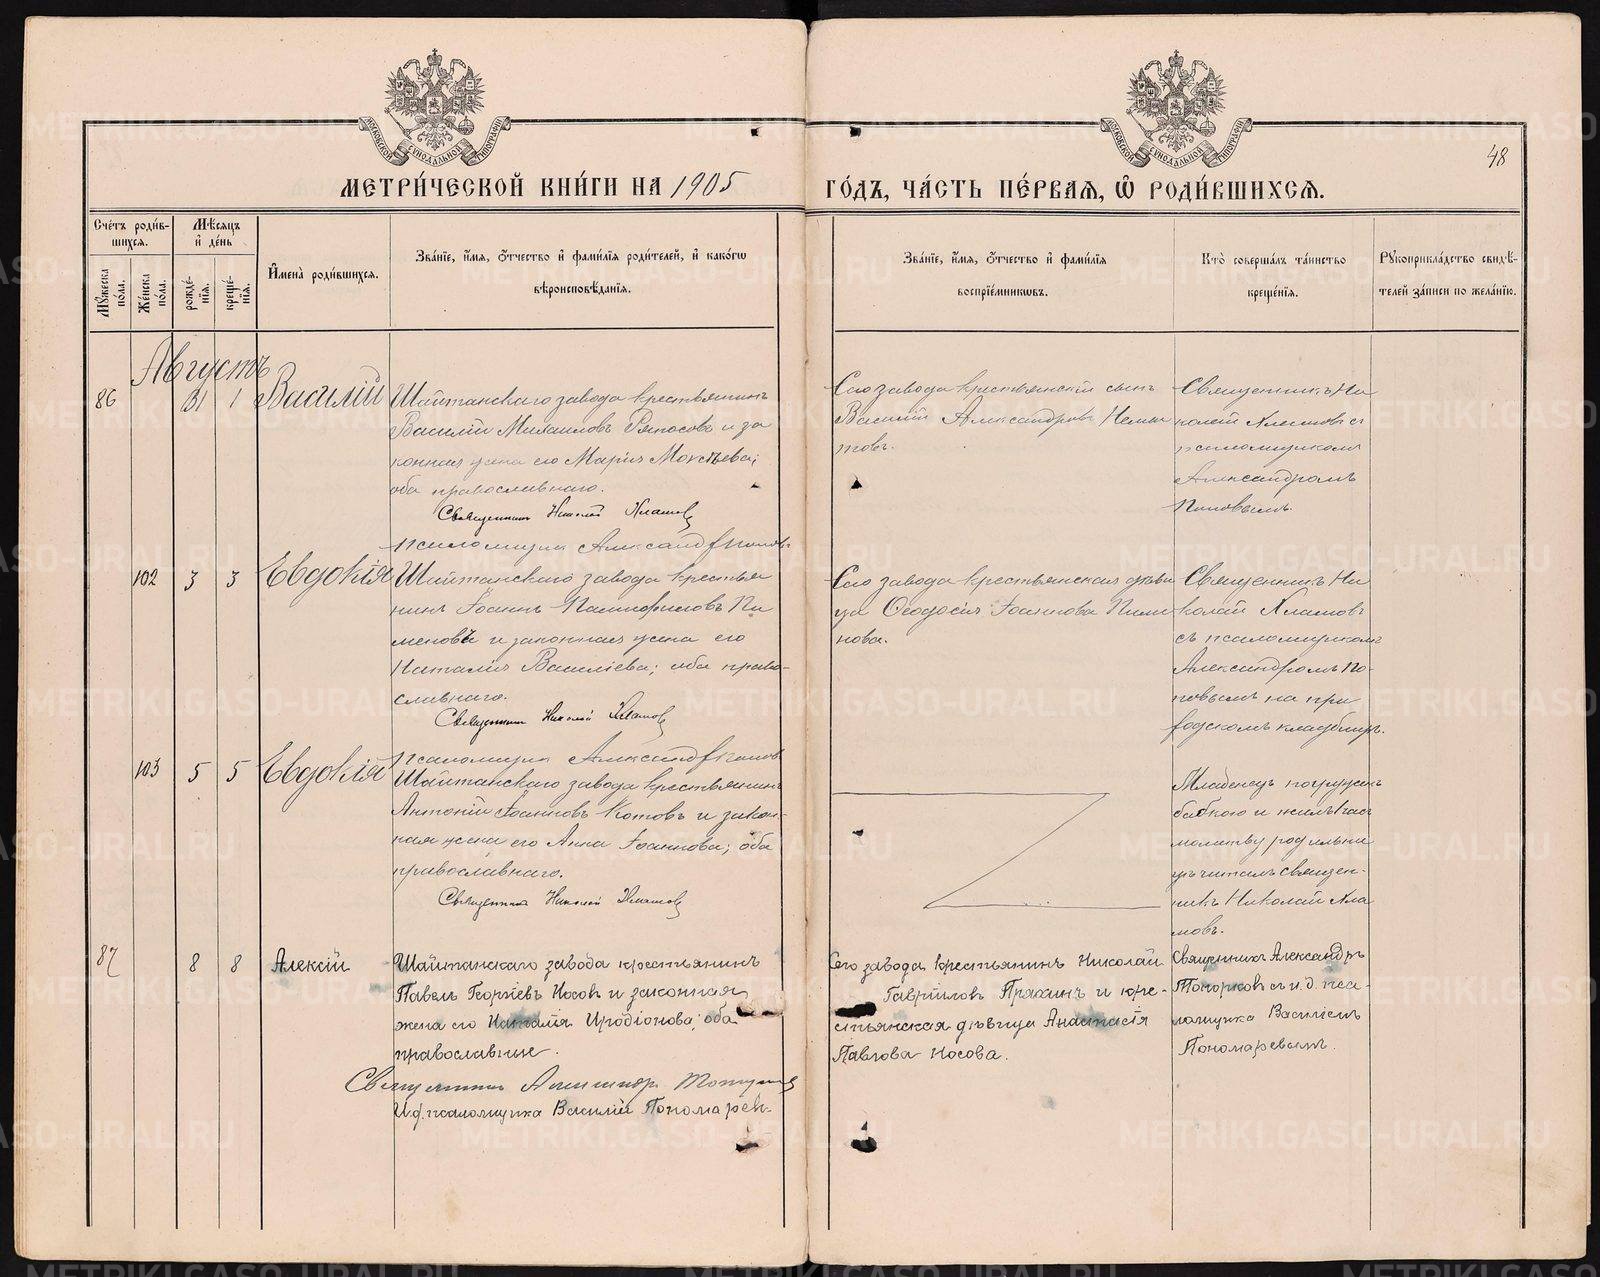 МОСКОВСКОЙ СУНОДАЛЬНОЙ ТИПОГРАФІИ
МОСКОВСКОЙ СУНОДАЛЬНОЙ ТИПОГРАФІИ
48
МЕТРИ́ЧЕСКОЙ КНИ́ГИ НА 1905
ГО́ДЪ, ЧА́СТЬ ПЕ́РВАЯ, Ѿ РОДИ́ВШИХСЯ.
Сче́тъ роди́в-
шихся.
Му́жеска по́ла.
Же́нска по́ла.
Мѣ́сяцъ
и҆ де́нь
рожде́-
нїя.
креще́-
нїя.
И҆мена̀ роди́вшихся.
Зва́нїе, и҆́мя, ѻ҆́тчество и҆ фами́лїя роди́телей, и҆ како́гѡ
вѣроисповѣ́данїя.
Зва́нїе, и҆́мя, ѻ҆́тчество и҆ фами́лїя
воспрїе́мникѡвъ.
Кто̀ соверша́лъ та́инство
креще́нїя.
Рꙋкоприкла́дство свидѣ́-
телей за́писи по жела́нїю.
Августъ
86
31
1
Василій
Шайтанскаго завода крестьянинъ
Василій Михаиловъ Ряпосовъ и за
конная жена его Марія Мокѣева;
оба православнаго.
Священникъ Николай Хламовъ
псаломщикъ Александръ Поповъ
Сего завода крестьянскій сынъ
Василій Александровъ
Священникъ Ни
колай Хламовъ съ
псаломщикомъ
Александромъ
Поповымъ.
102
3
3
Евдокія
Шайтанскаго завода крестья
нинъ Іоаннъ Памфиловъ Пи
меновъ и законная жена его
Наталія Василіева; оба право-
славнаго.
Священникъ Николай Хламовъ
Псаломщикъ Александръ Поповъ
Сего завода крестьянская дѣви
ца Ѳеодосія Іоаннова Пиме
нова.
Священникъ Ни
колай Хламовъ
съ псаломщикомъ
Александромъ По-
повымъ на при
ходскомъ кладбищѣ.
103
5
5
Евдокія
Шайтанскаго завода крестьянинъ
Антоній Іоанновъ Котовъ и закон-
ная жена его Анна Іоаннова; оба
православнаго.
Священникъ Николай Хламовъ
Младенецъ погруженъ
бабкою и жилъ 1 час
молитву родильни
цѣ читалъ священ-
никъ Николай Хла
мовъ.
87
8
8
Алексій
Шайтанскаго завода крестьянинъ
Павелъ Георгіевъ Носовъ и законная
жена его Наталія Иродіонова; оба
православные.
Священникъ Александръ Топорковъ
И.д. псаломщика Василій Пономарев-
Сего завода крестьянинъ Николай
Гавріиловъ Пряхинъ и кре-
стьянская дѣвица Анастасія
Павлова Носова.
Священникъ Александръ
Топорковъ съ и.д. пса-
ломщика Василіемъ
Пономаревымъ.
METRIKI.GASO-URAL.RU